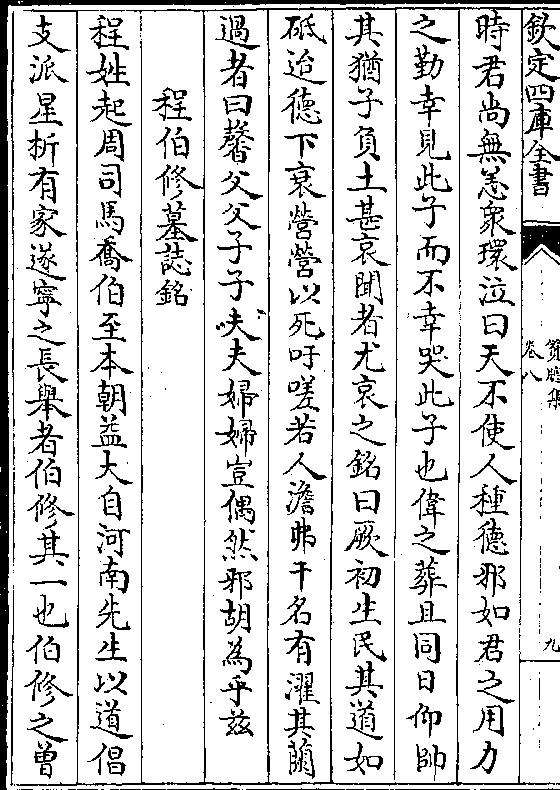 欽定四庫全書
卷八
九
時君尚無恙衆環泣曰天不使人種德邪如君之用力
之勤幸見此子而不幸哭此子也偉之葬且同日仰帥
其猶子負土甚哀聞者尤哀之銘曰厥初生民其道如
砥迨德下衰營營以死吁嗟若人澹弗干名有濯其蘭
過者曰馨父父子子夫夫婦婦豈偶然邪胡為乎兹
程伯修墓誌銘
程姓起周司馬喬伯至本朝益大自河南先生以道倡
支派星析有家遂寧之長舉者伯修其一也伯修之曾